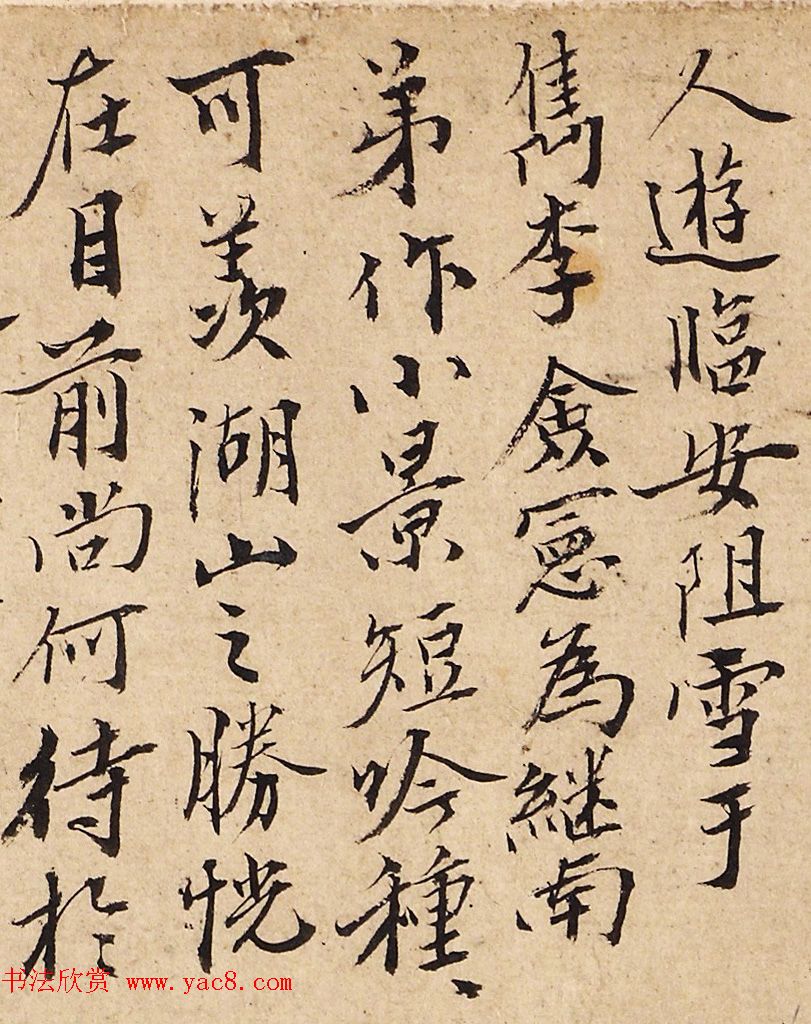 人遊臨安阻雪于
雋李僉憲為継南
弟作小景短吟種、
可羨湖山之勝恍
在目前尚何待於
书法欣赏 www.yac8.com